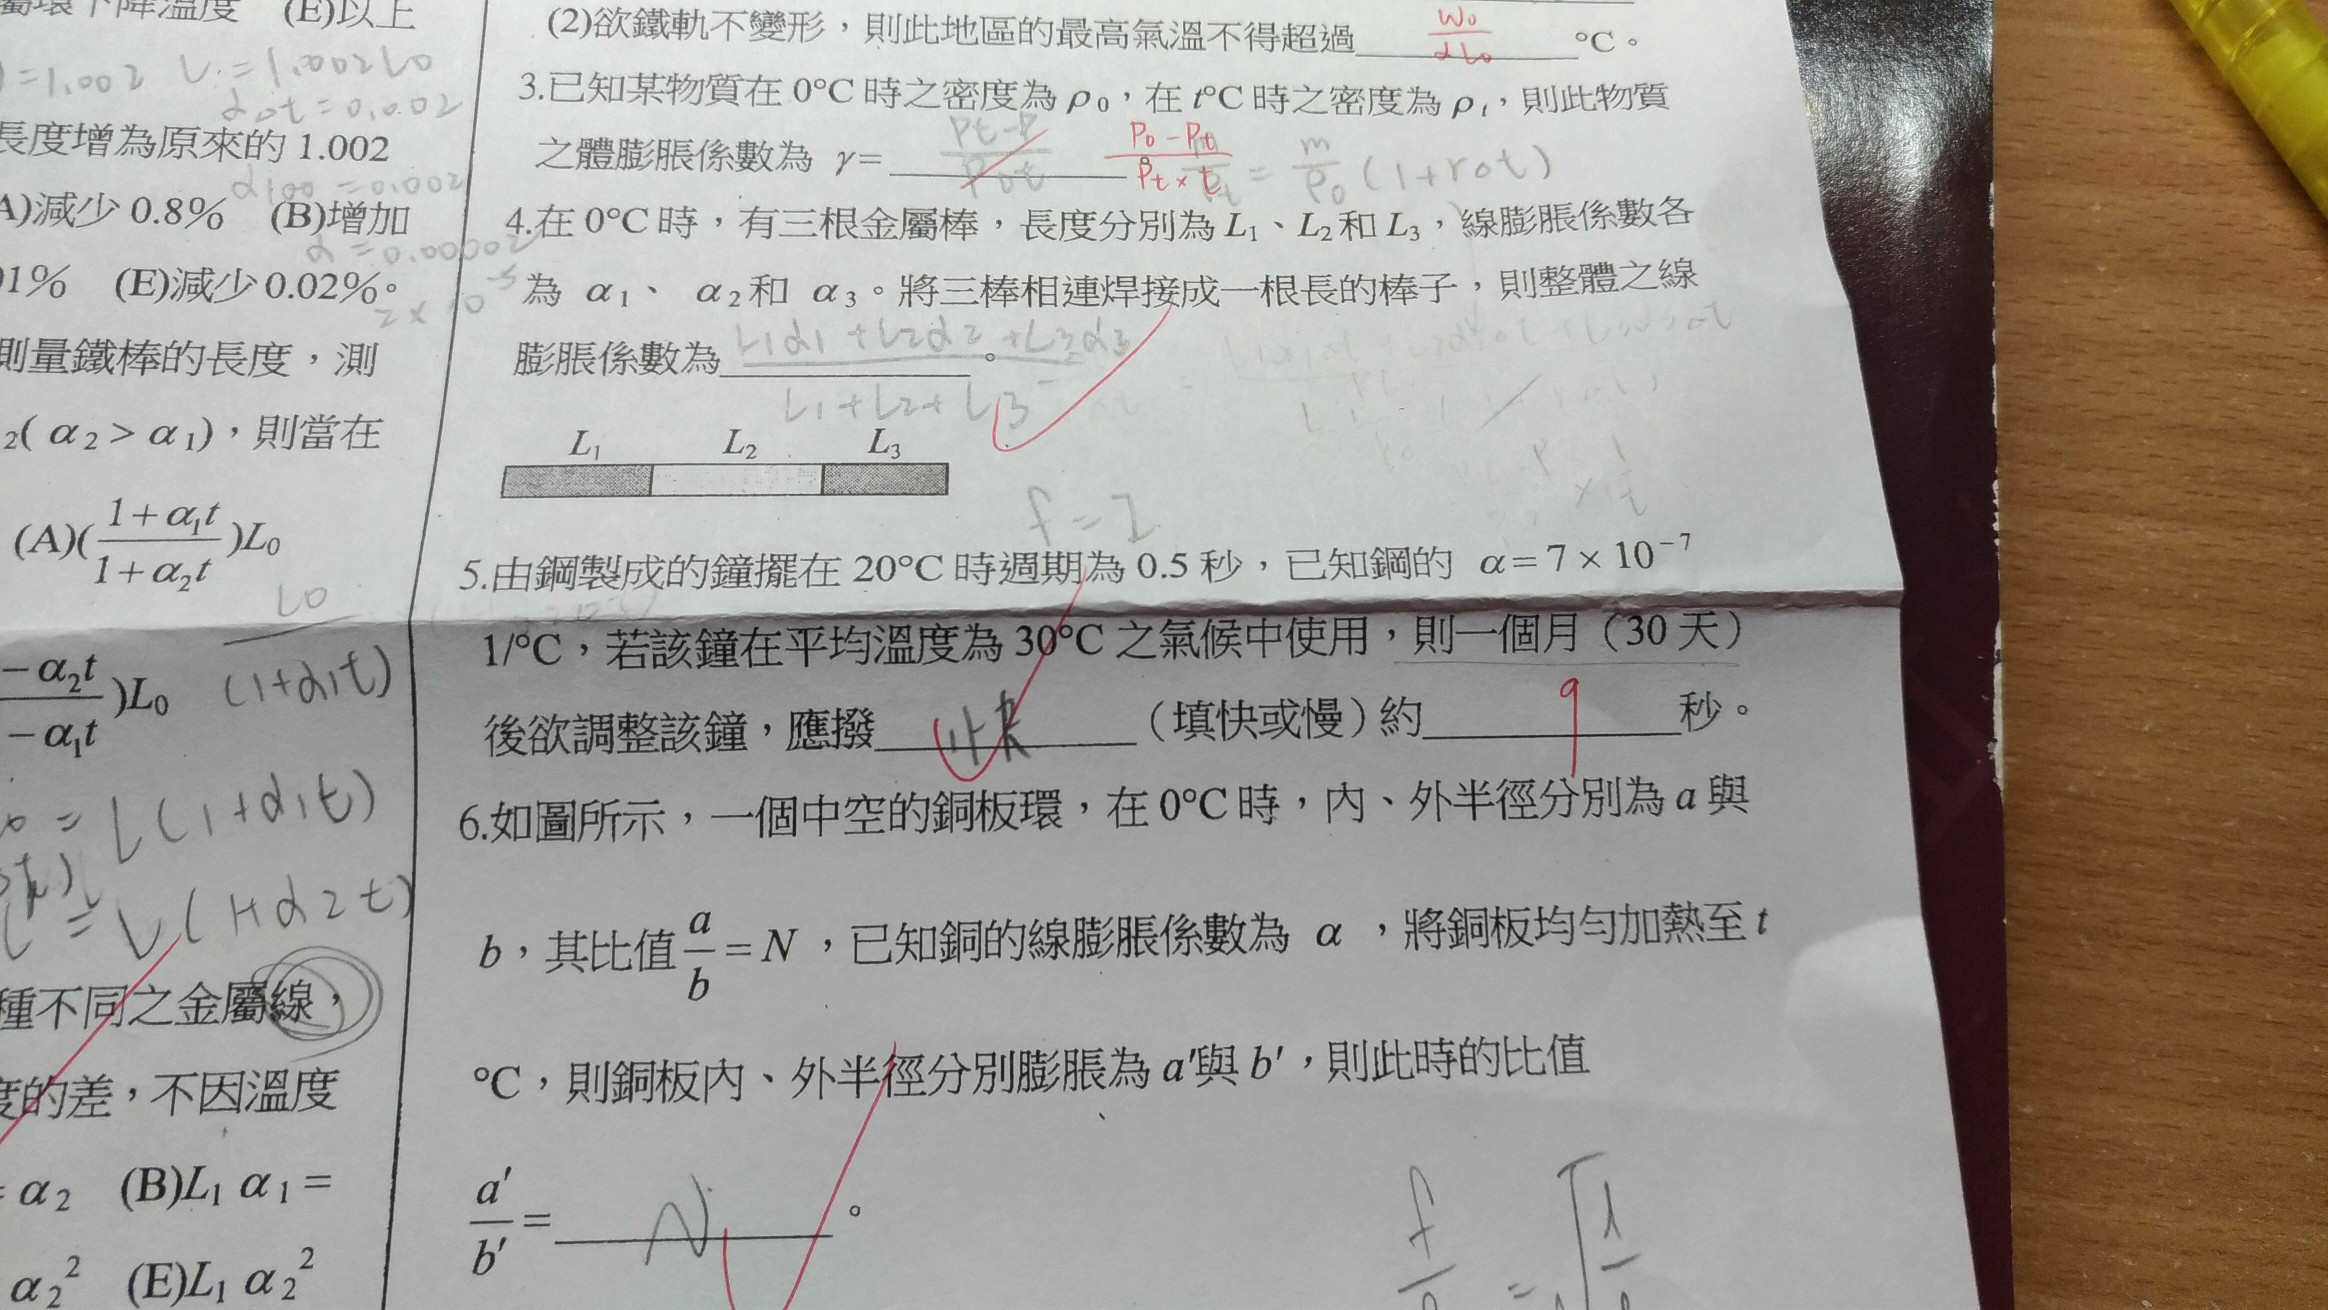 屬環下降溫度 (E)以上
=1.002 L=1.002L0
αot=0.002
長度增為原來的 1.002
α100=0.002
A)減少 0.8% (B)增加
α=0.00002
1% (E)減少 0.02%。
2×10⁻⁵
則量鐵棒的長度，測
₂( α₂ > α₁)，則當在
(A)(1+α₁t/1+α₂t)L₀
L0/(1+α1t)
−α₂t/−α₁t)L₀
=L(1+α1t)
=L(1+α2t)
種不同之金屬線，
度的差，不因溫度
= α₂ (B)L₁ α₁ =
α₂² (E)L₁ α₂²
(2)欲鐵軌不變形，則此地區的最高氣溫不得超過 W₀/αL₀ °C。
3.已知某物質在 0°C 時之密度為 ρ₀，在 t°C 時之密度為 ρₜ，則此物質
之體膨脹係數為 γ= P₀-Pt/Pt×t = m/ρ₀(1+rot)
4.在 0°C 時，有三根金屬棒，長度分別為 L₁、L₂和 L₃，線膨脹係數各
為 α₁、 α₂和 α₃。將三棒相連焊接成一根長的棒子，則整體之線
膨脹係數為 L1α1+L2α2+L3α3/L1+L2+L3 。
L₁ L₂ L₃
f=2
5.由鋼製成的鐘擺在 20°C 時週期為 0.5 秒，已知鋼的 α=7×10⁻⁷
1/°C，若該鐘在平均溫度為 30°C 之氣候中使用，則一個月（30 天）
後欲調整該鐘，應撥 快 （填快或慢）約 9 秒。
6.如圖所示，一個中空的銅板環，在 0°C 時，內、外半徑分別為 a 與
b，其比值 a/b=N，已知銅的線膨脹係數為 α，將銅板均勻加熱至 t
°C，則銅板內、外半徑分別膨脹為 a′與 b′，則此時的比值
a′/b′= N 。